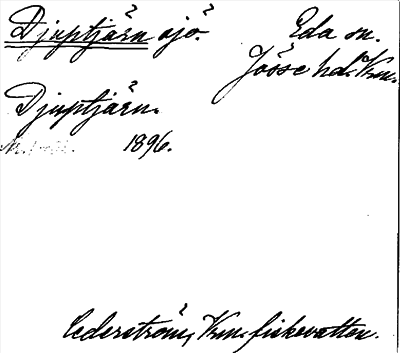 Djuptjärn sjö. Eda sn.
Jösse hd. Vrm.
Djuptjärn.
1896.
Cederström, Vrm. fiskevatten.